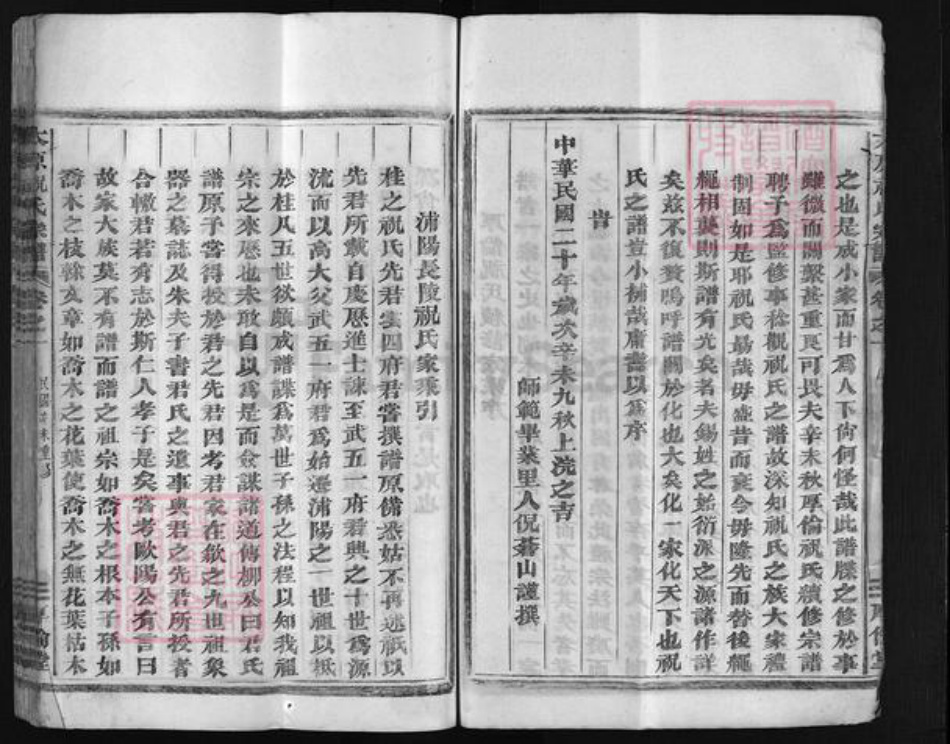 之也是戒小家而甘為人下向何怪哉此譜牒之修於事
雖微而關繫甚重良可畏夫辛未秋厚倫祝氏續修宗譜
聘予為監修事稔觀祝氏之譜故深知祝氏之族大家禮
制固如是耶祝氏勗哉毋盛昔而衰今毋隆先而替後繩
繩相集則斯譜有光矣者夫錫姓之始衍派之源諸作詳
矣茲不復贅嗚呼譜關於化也大矣化一家化天下也祝
氏之譜豈小補哉庸書以為序
旹
中華民國二十年歲次辛未九秋上浣之吉
師範畢業里人倪蓊山謹撰
浦陽長陵祝氏家乘引
桂之祝氏先君雲四府君嘗撰譜原備悉姑不再述祇以
先君所載自慶曆進士諫至武五一府君與之十世為源
流而以高大父武五一府君為始遷浦陽之一世祖以柢
於桂凡五世欲願成譜諜為萬世子孫之法程以知我祖
宗之來歷也未敢自以為是而僉謀譜道傳柳公曰君氏
譜原予嘗得授於君之先君因考君家在歙之九世祖象
器之墓誌及朱夫子書君氏之遺事與君之先君所授者
合轍君若有志於斯仁人孝子是矣嘗考歐陽公有言曰
故家大族莫不有譜而譜之祖宗如喬木之根本子孫如
喬木之枝榦文章如喬木之花葉使喬木之無花葉枯木
太原祝氏宗譜
卷之一
厚倫堂